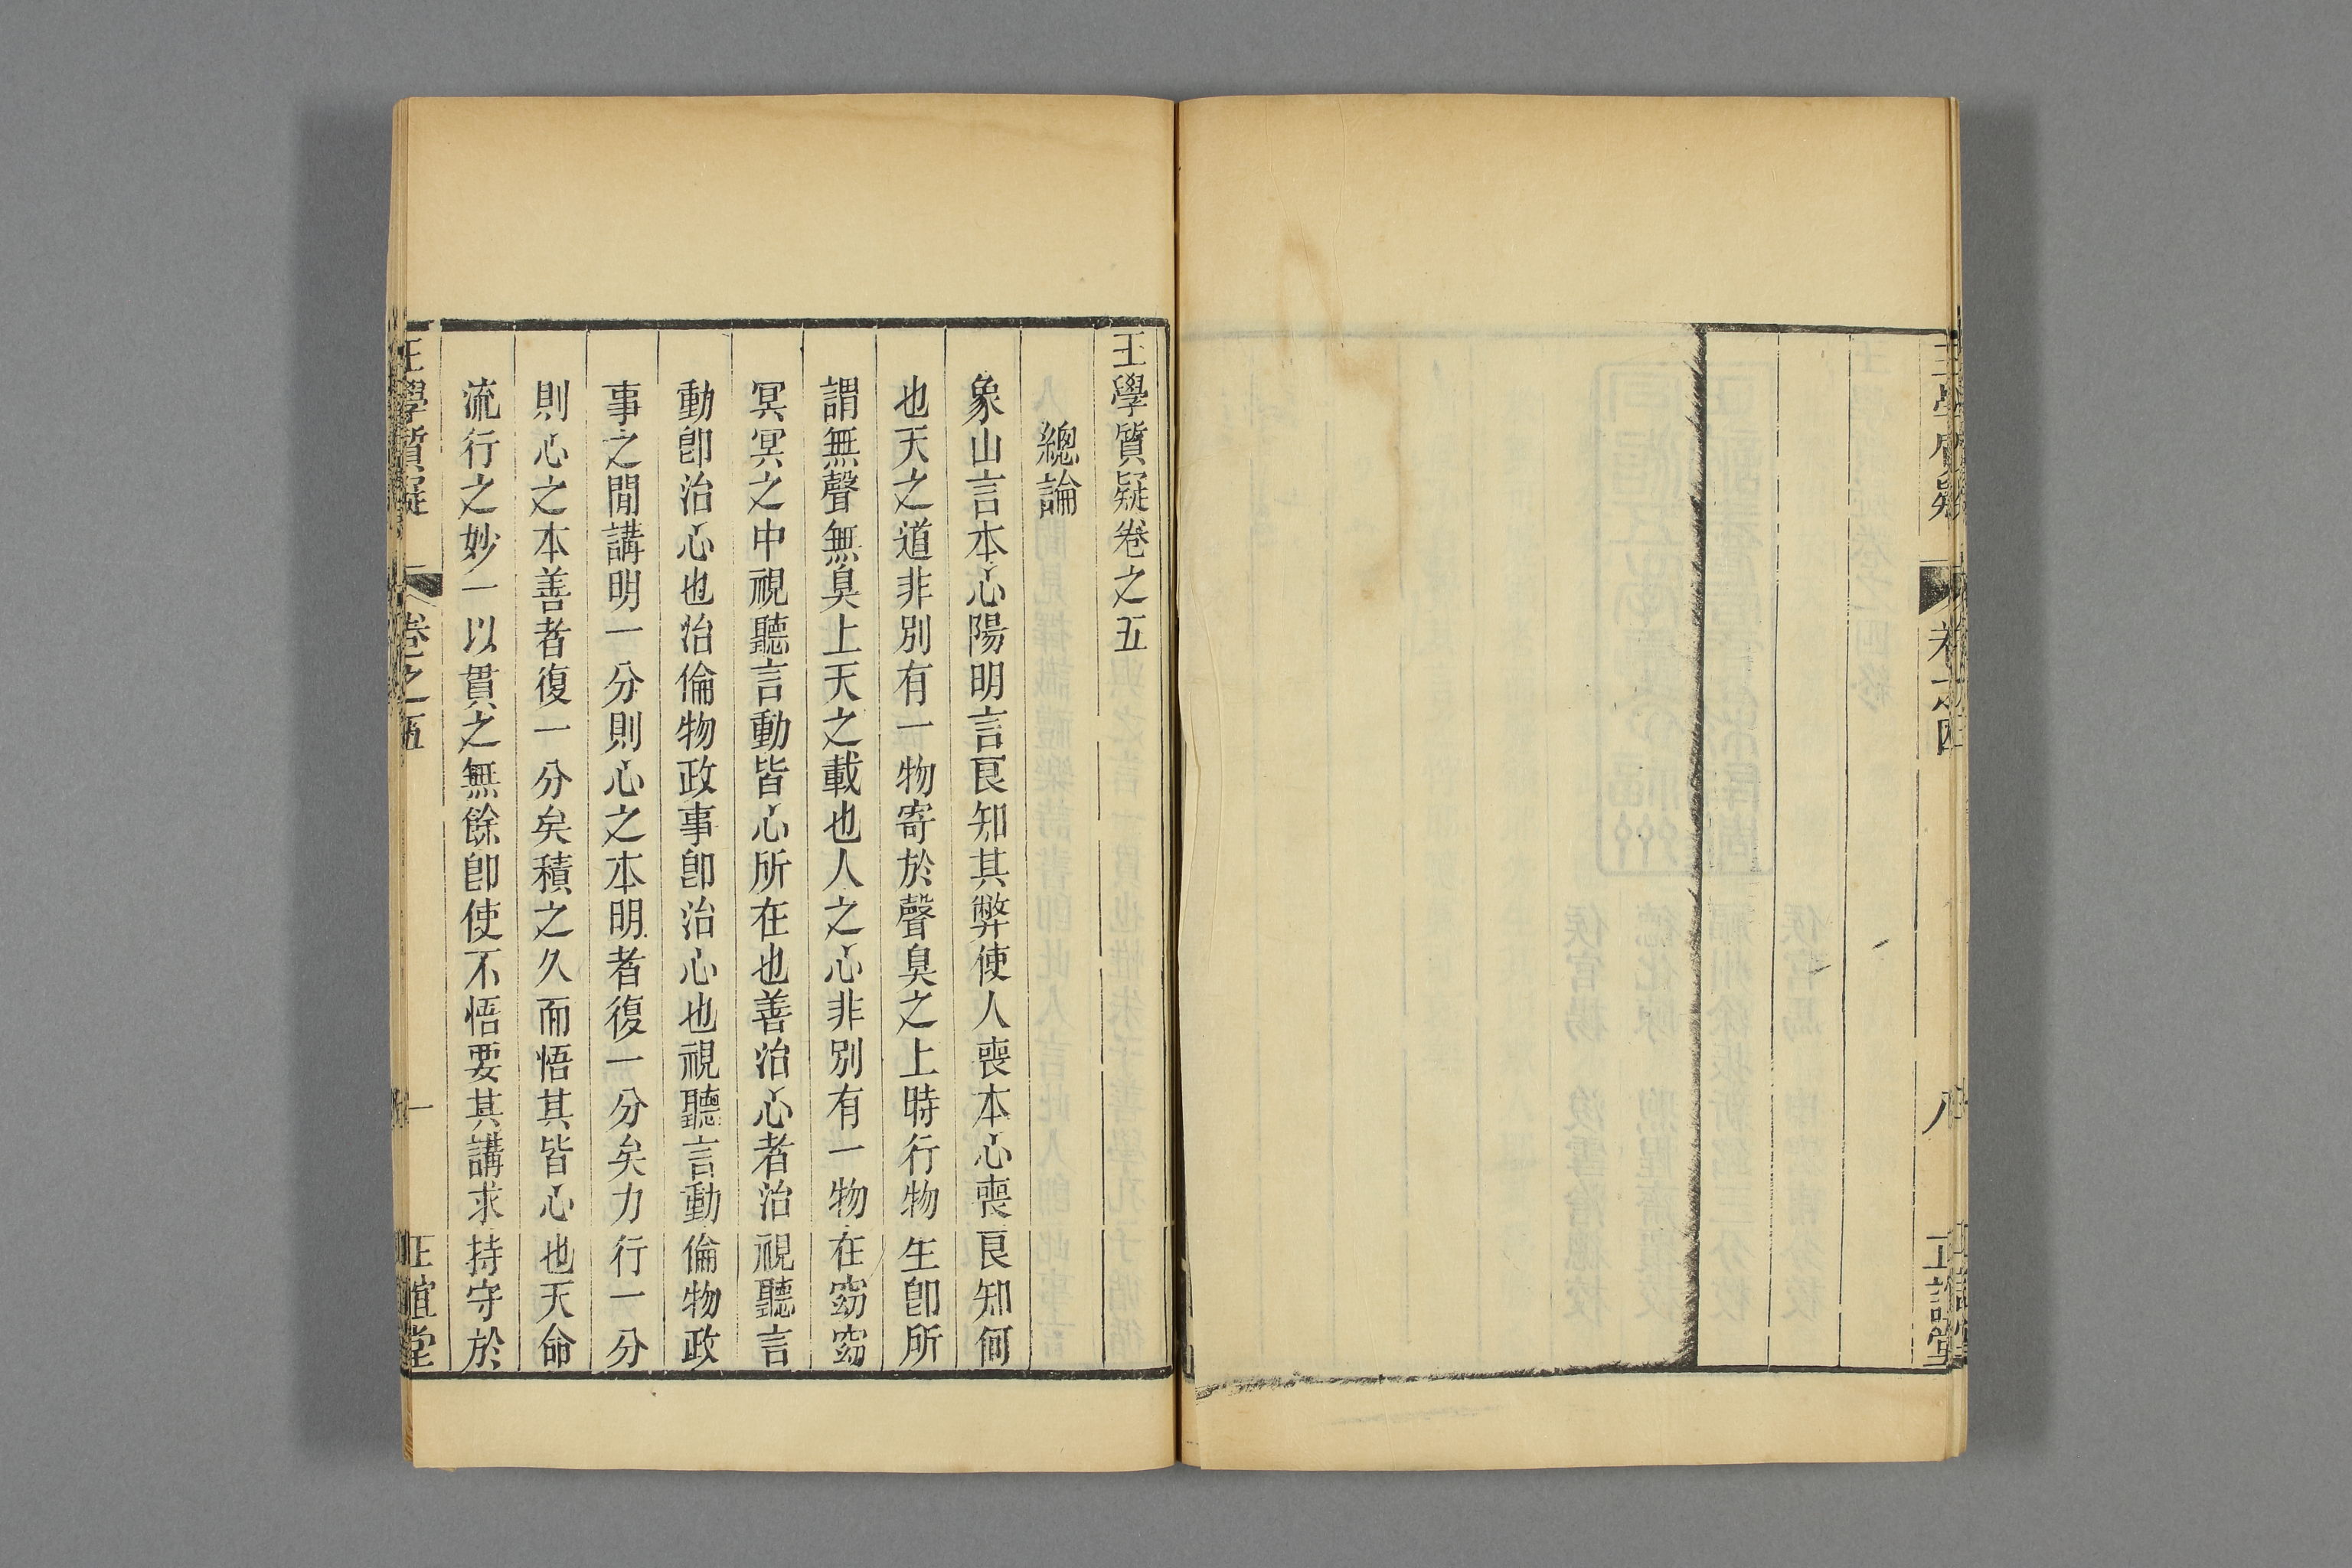 王學質疑
卷之四
八
正誼堂
王學質疑卷之五
總論
象山言本心陽明言良知其弊使人喪本心喪良知何
也天之道非別有一物寄於聲臭之上時行物生卽所
謂無聲無臭上天之載也人之心非別有一物在窈窈
冥冥之中視聽言動皆心所在也善治心者治視聽言
動卽治心也治倫物政事卽治心也視聽言動倫物政
事之閒講明一分則心之本明者復一分矣力行一分
則心之本善者復一分矣積之久而悟其皆心也天命
流行之妙一以貫之無餘卽使不悟要其講求持守於
王學質疑
卷之五
一
正誼堂